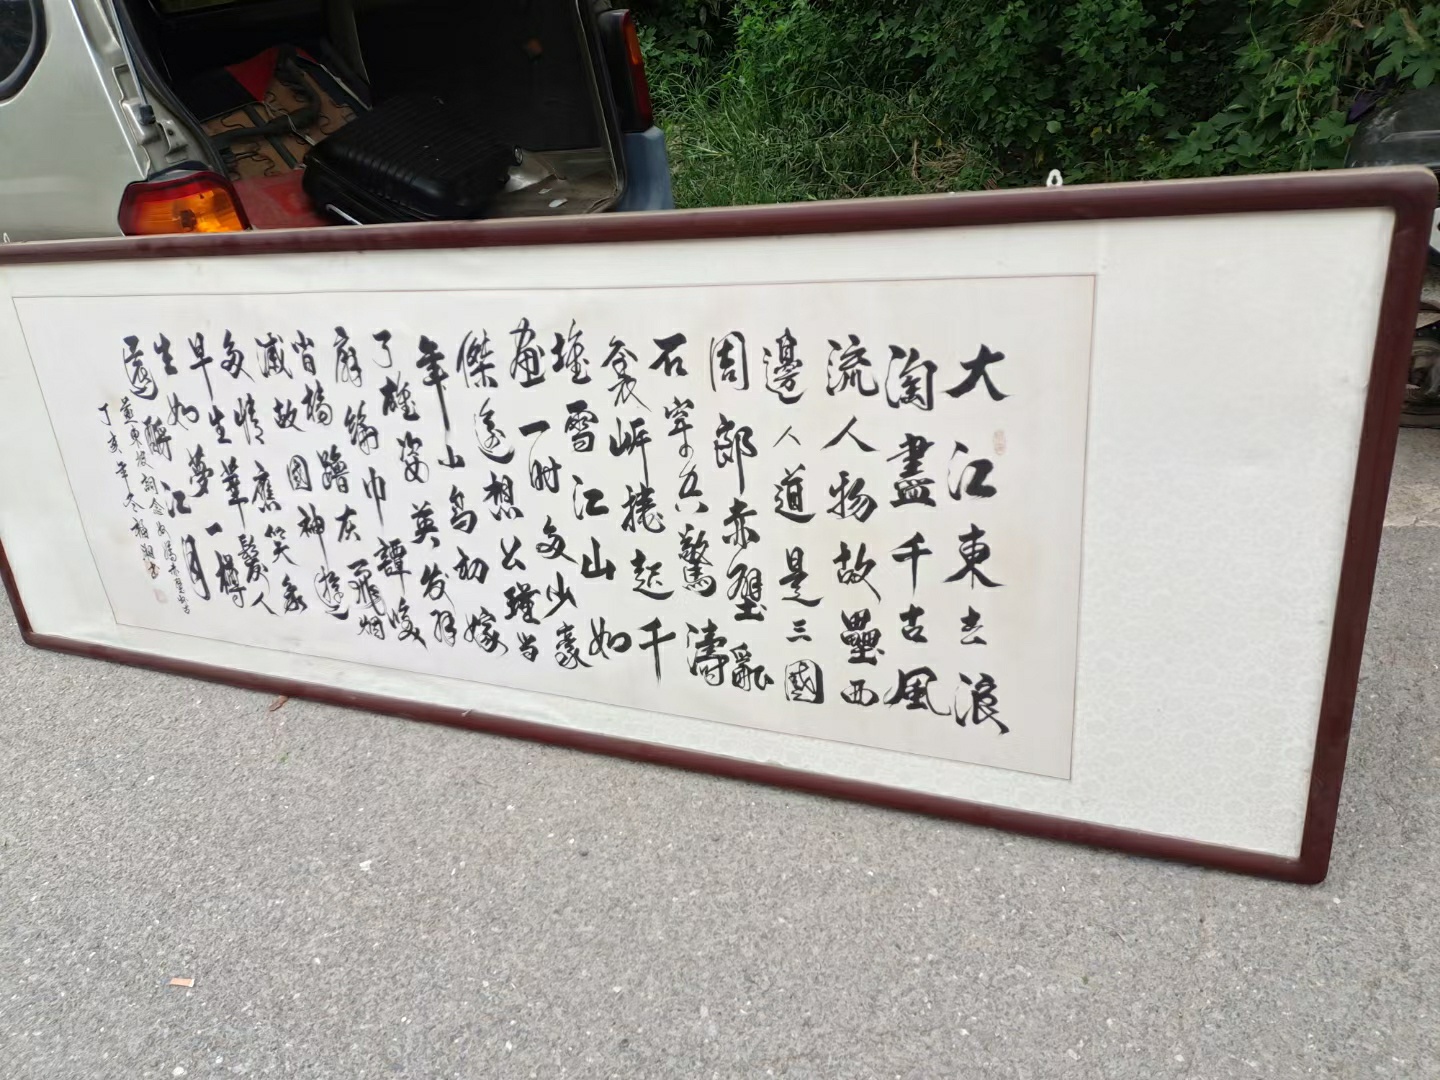 大江東去浪
淘盡千古風
流人物故壘西
邊人道是三國
周郎赤壁亂
石穿空驚濤
裂岸捲起千
堆雪江山如
畫一時多少豪
傑遙想公瑾當
年小喬初嫁
了雄姿英发羽
扇綸巾談
櫓灰飛烟
滅故國神遊
多情應笑我
早生華髮人
生如夢一樽
還酹江月
蘇東坡詞念奴嬌赤壁懷古
丁亥年冬